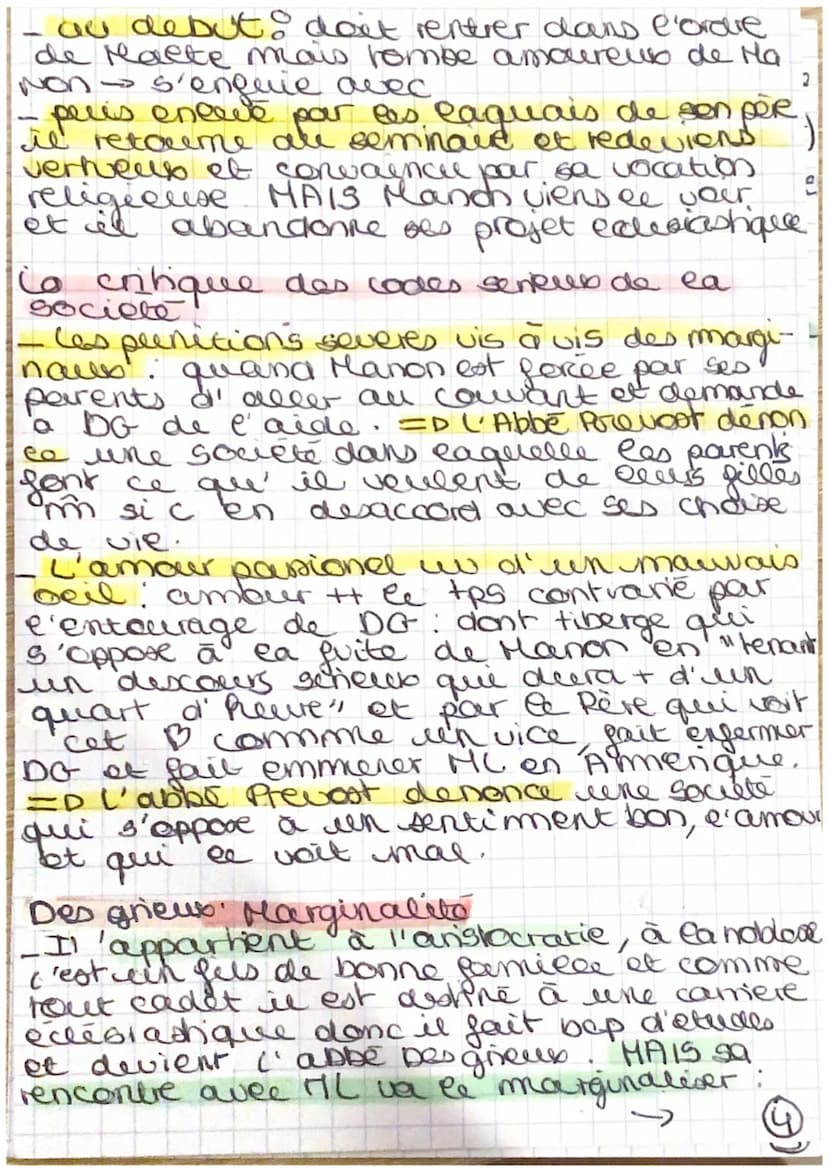 - au debut : doit rentrer dans l'ordre
de Malte mais tombe amoureux de Ma
non → s'enguie avec
- puis enlevé par les laquais de son père,
il retourne au seminaire et redeviens
vertueux et convaincu par sa vocation
religieuse MAIS Manon viens le voir
et il abandonne ses projet ecclesiastique
La critique des codes serieux de la
société
- Les punitions severes vis à vis des margi-
naux : quand Manon est forcée par ses
parents d'aller au couvant et demande
a DG de l'aide. => L'Abbé Prevost dénon
ce une société dans laquelle les parents
font ce qu'il veulent de leurs filles
mm si c en desaccord avec ses choise
de vie.
- L'amour passionel vu d'un mauvais
oeil : amour ++ le tps contrarié par
l'entourage de DG : dont tiberge qui
s'oppose à la fuite de Manon en "tenant
un descours serieux qui dura + d'un
quart d'heure" et par le Père qui voit
cet ♡ comme un vice, fait enfermer
DG et fait emmener ML en Amerique.
=> L'abbé Prevost denonce une société
qui s'oppose à un sentiment bon, l'amour
et qui le voit mal.
Des grieux : Marginalité
- Il 'appartient à l'aristocratie, à la noblesse
c'est un fils de bonne famille et comme
tout cadet il est destiné à une carriere
éclésiastique donc il fait bcp d'etudes
et devient l'abbé Des grieux. MAIS sa
rencontre avec ML va le marginaliser :
→ 4